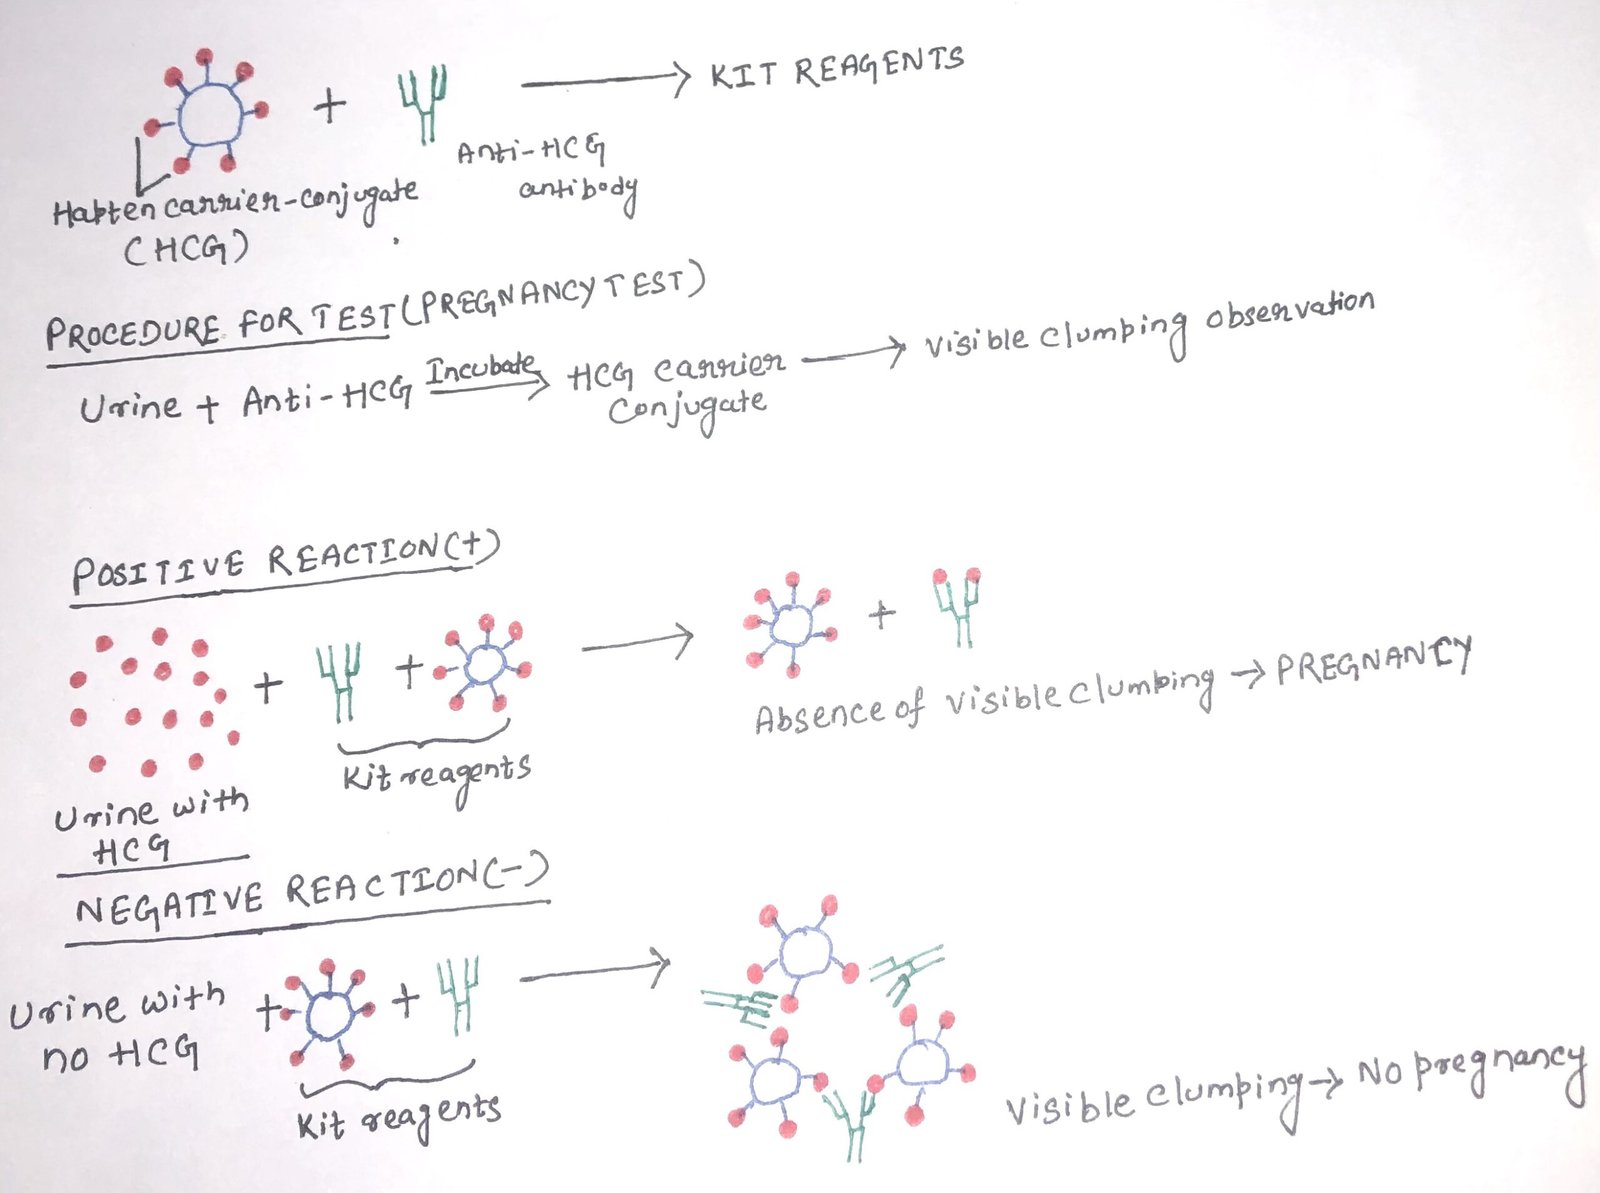 +
→ KIT REAGENTS
Anti-HCG
antibody
Hapten carrier-conjugate
(HCG)
PROCEDURE FOR TEST (PREGNANCY TEST)
Urine + Anti-HCG Incubate → HCG carrier → visible clumping observation
Conjugate
POSITIVE REACTION (+)
+ + → +
Absence of visible clumping → PREGNANCY
Kit reagents
Urine with
HCG
NEGATIVE REACTION (-)
Urine with + + →
no HCG
Kit reagents
Visible clumping → No pregnancy